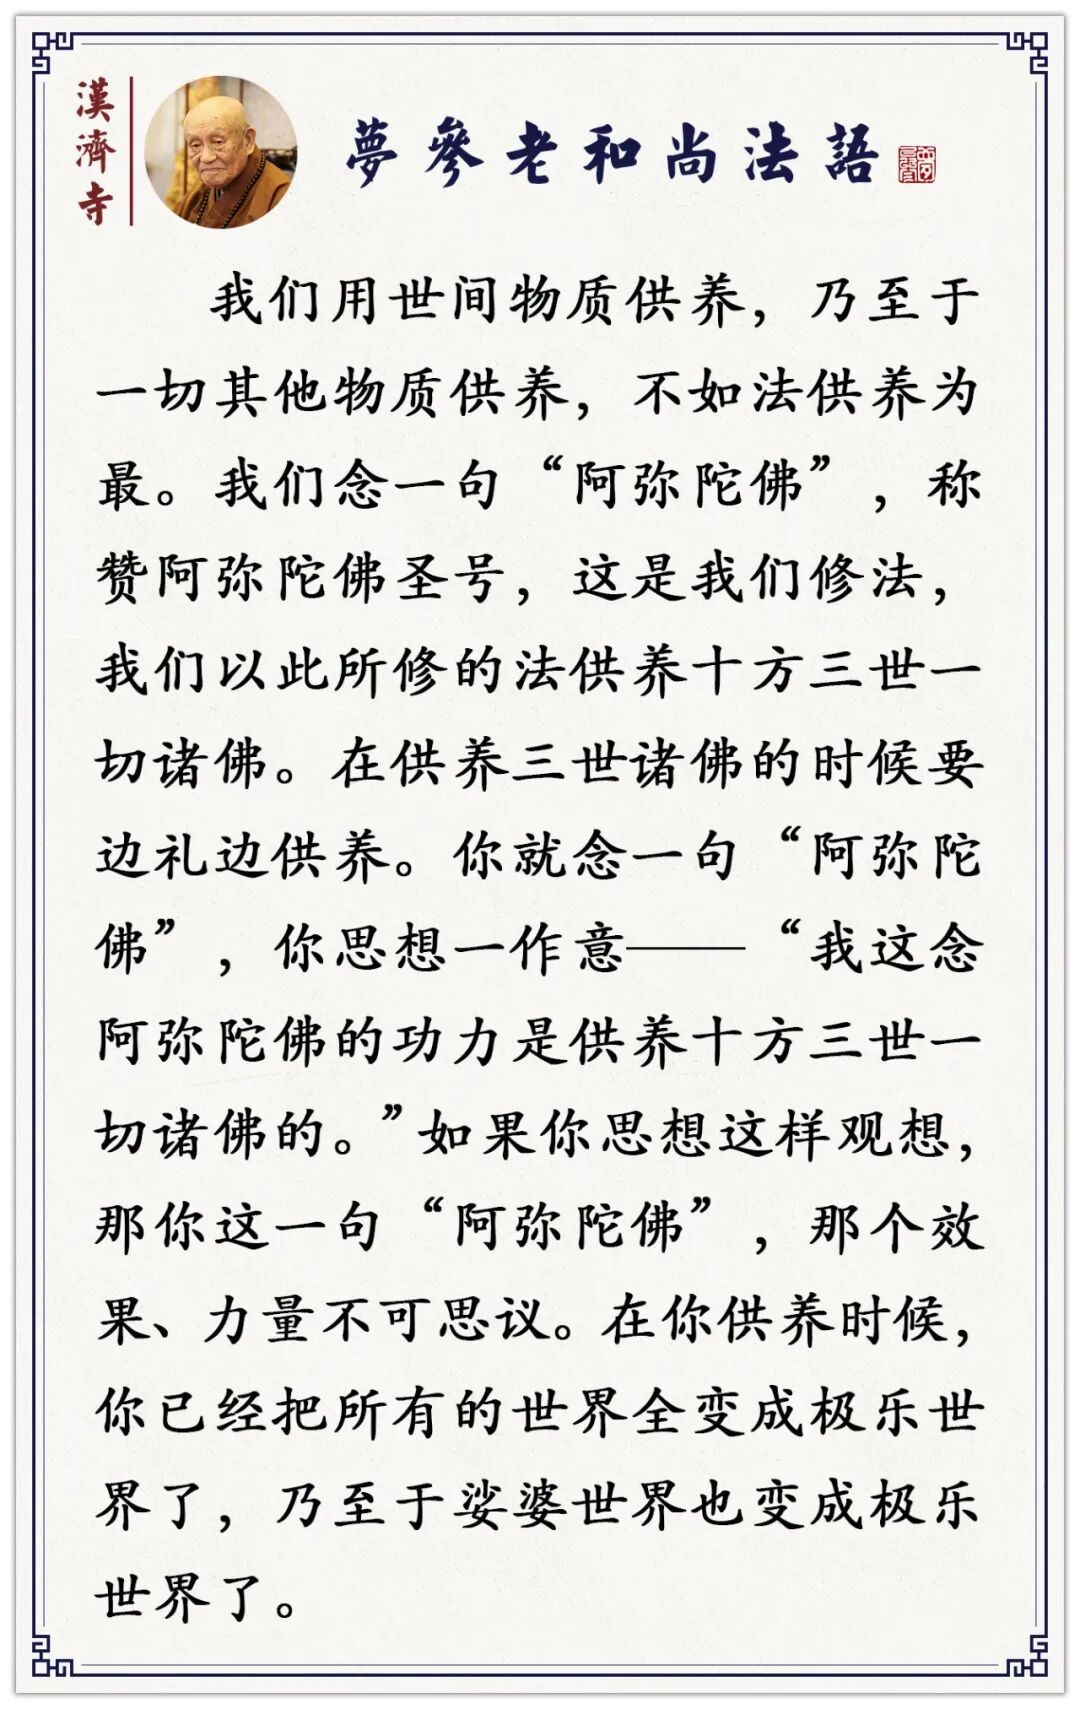 漢濟寺
夢參老和尚法語
我们用世间物质供养，乃至于
一切其他物质供养，不如法供养为
最。我们念一句“阿弥陀佛”，称
赞阿弥陀佛圣号，这是我们修法，
我们以此所修的法供养十方三世一
切诸佛。在供养三世诸佛的时候要
边礼边供养。你就念一句“阿弥陀
佛”，你思想一作意——“我这念
阿弥陀佛的功力是供养十方三世一
切诸佛的。”如果你思想这样观想，
那你这一句“阿弥陀佛”，那个效
果、力量不可思议。在你供养时候，
你已经把所有的世界全变成极乐世
界了，乃至于娑婆世界也变成极乐
世界了。